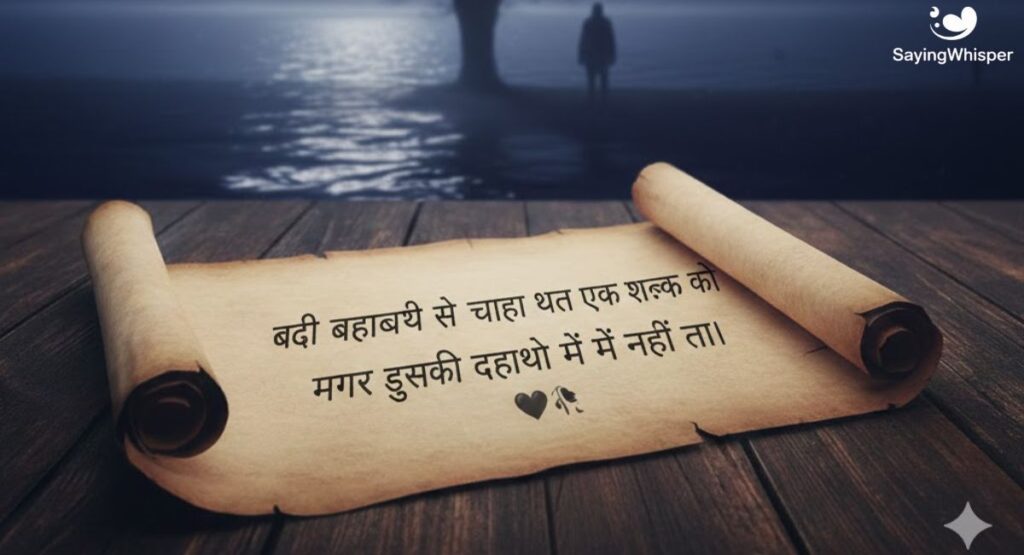 SayingWhisper
बदी बहाबथी से चाहा थत एक शल़्क को
मगर डुसकी दहाथो में में नहीं ता।
🖤🥀